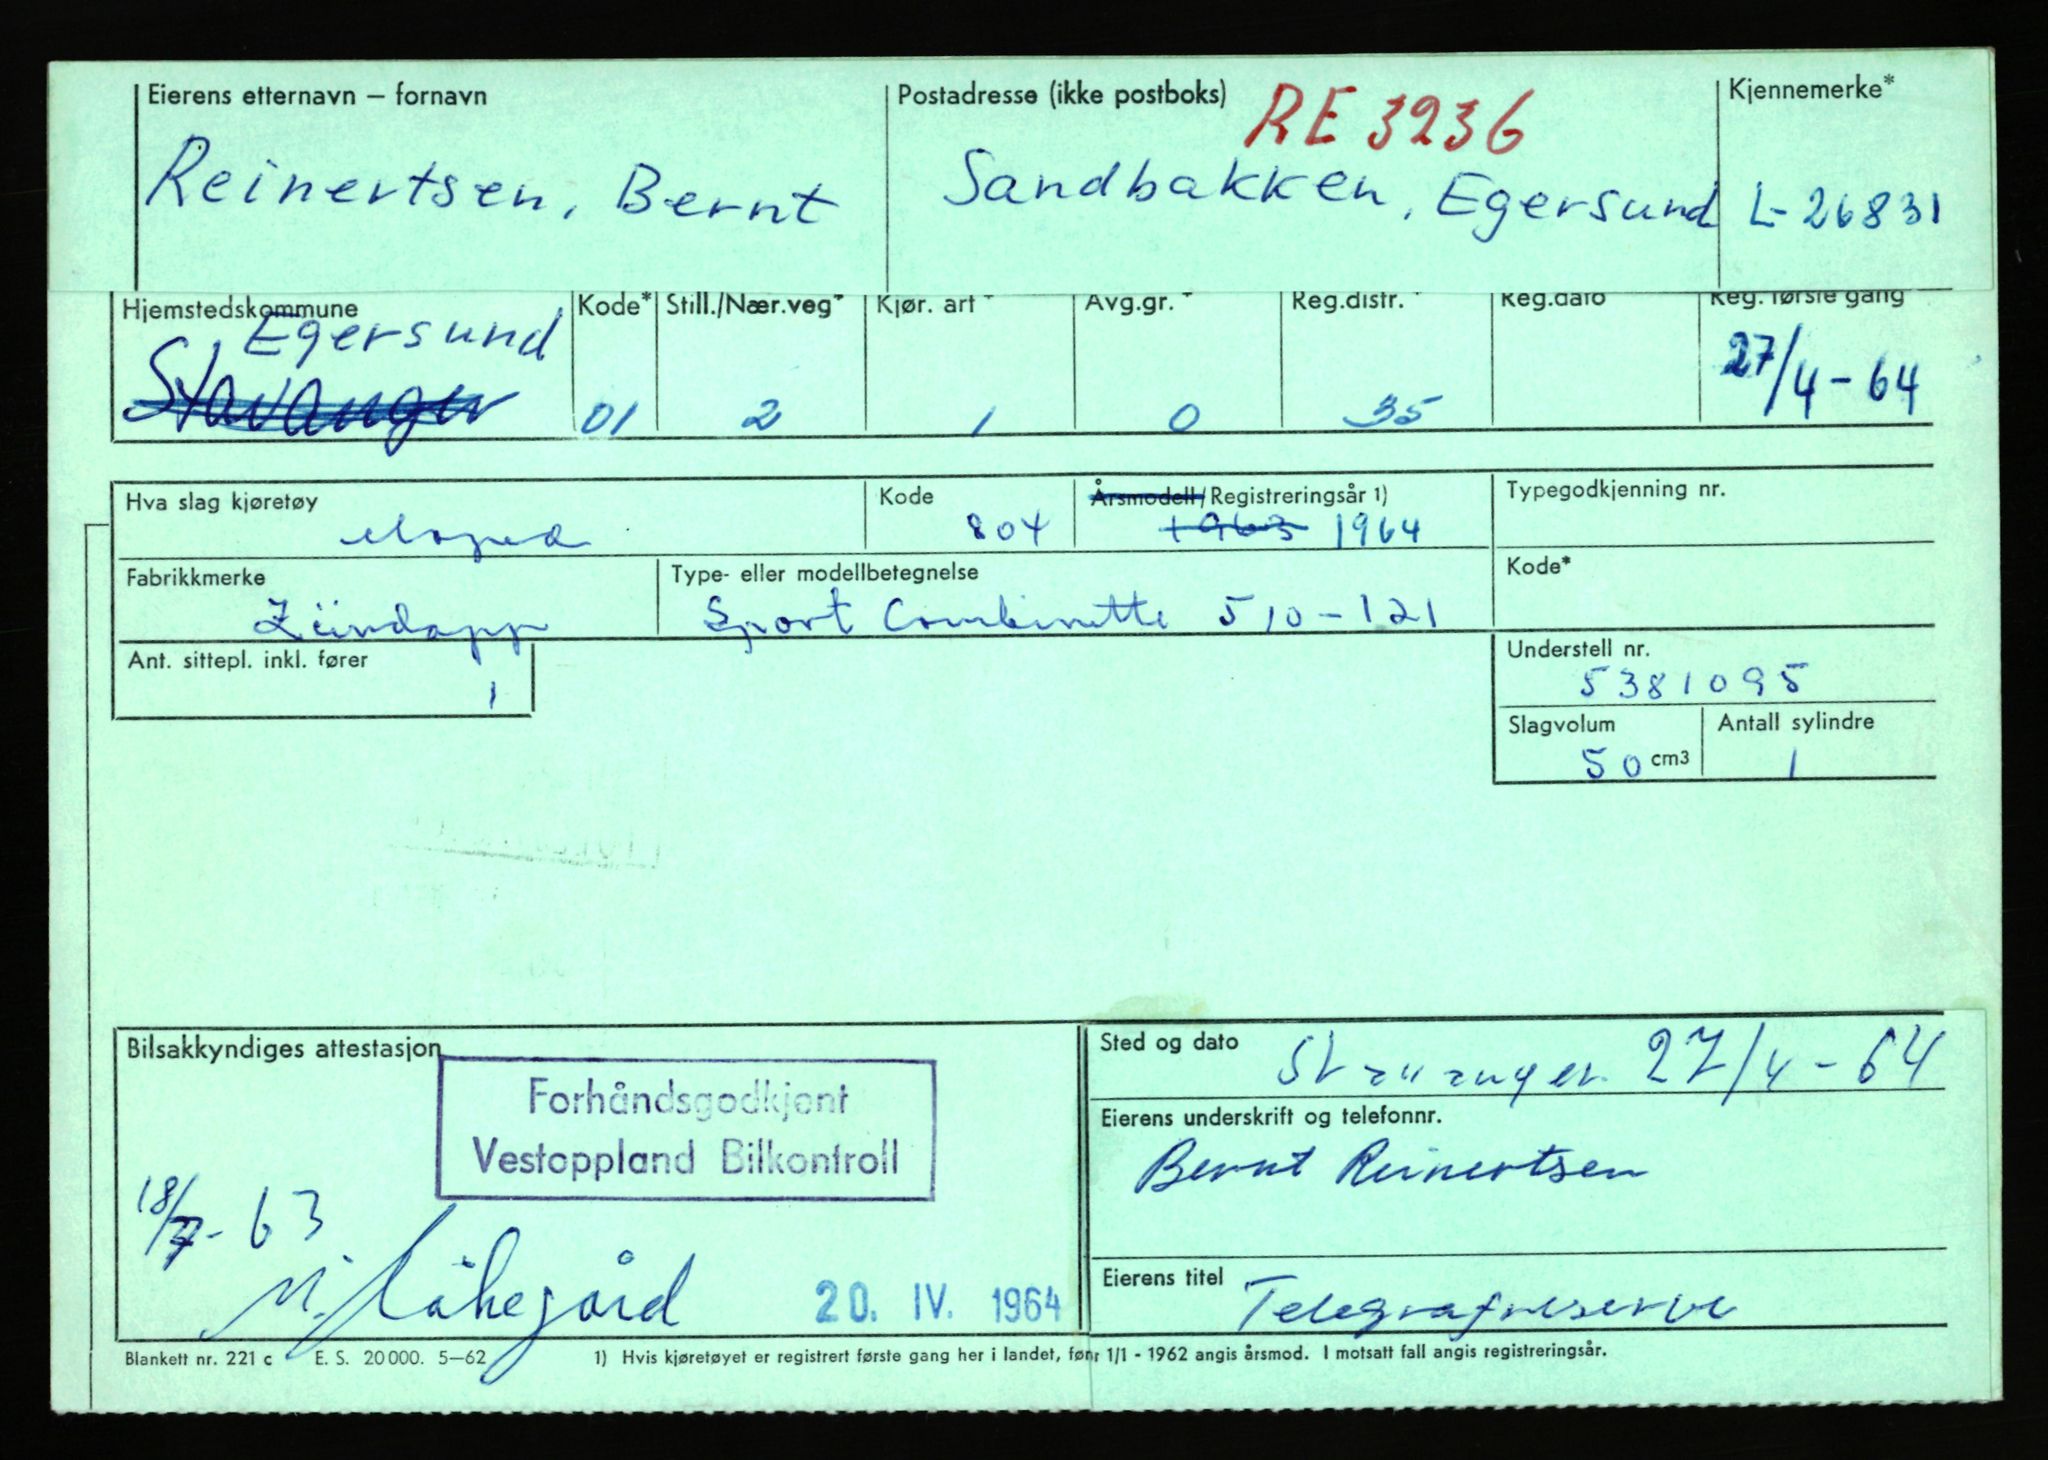 Eierens etternavn – fornavn
Reinertsen, Bernt
Postadresse (ikke postboks) RE 3236
Sandbakken, Egersund
Kjennemerke*
L-26831
Hjemstedskommune
Egersund
Stavanger
Kode*
01
Still./Nær.veg*
2
Kjør. art *
1
Avg.gr. *
0
Reg.distr. *
35
Reg.dato
Reg. første gang
27/4-64
Hva slag kjøretøy
Moped
Kode
804
Årsmodell/Registreringsår 1)
1963 1964
Typegodkjenning nr.
Kode*
Fabrikkmerke
Zündapp
Type- eller modellbetegnelse
Sport Combinette 510-121
Ant. sittepl. inkl. fører
1
Understell nr.
5381095
Slagvolum
50 cm3
Antall sylindre
1
Bilsakkyndiges attestasjon
Forhåndsgodkjent
Vestoppland Bilkontroll
18/7-63
20. IV. 1964
Sted og dato
Stavanger 27/4-64
Eierens underskrift og telefonnr.
Bernt Reinertsen
Eierens titel
Blankett nr. 221 c E. S. 20000. 5–62 1) Hvis kjøretøyet er registrert første gang her i landet, før 1/1 - 1962 angis årsmod. I motsatt fall angis registreringsår.